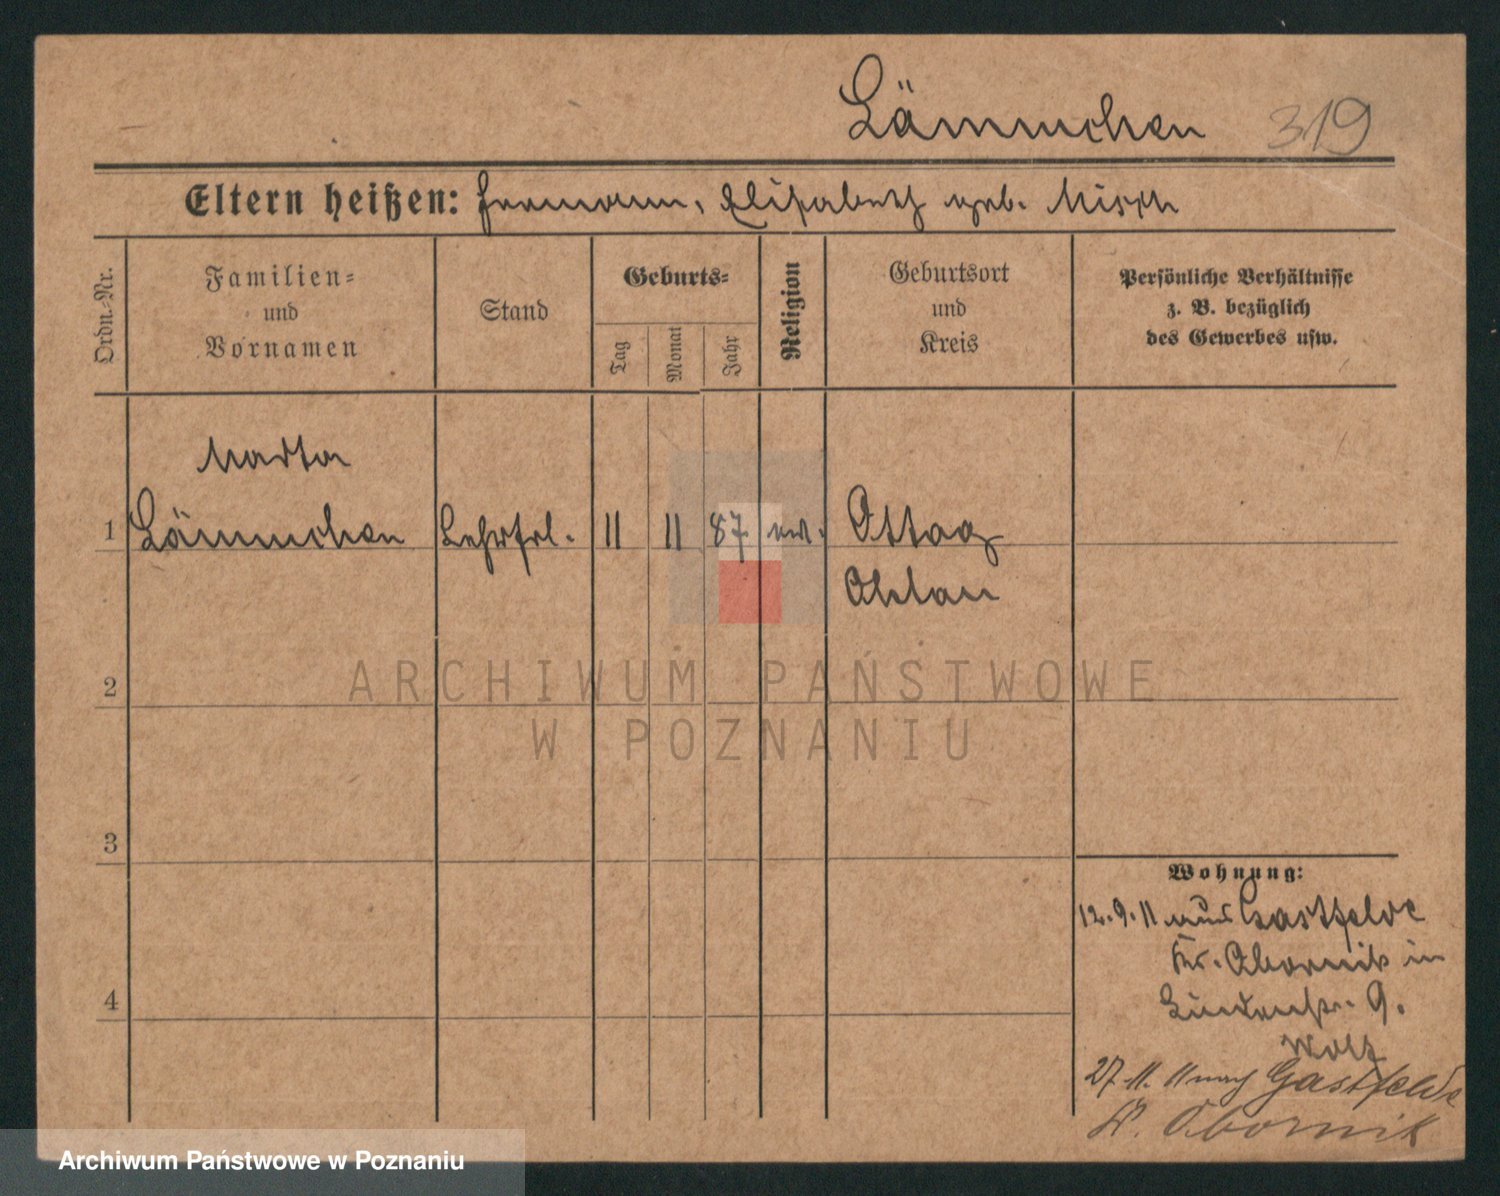 Lämmchen 319
Eltern heißen: Hermann, Elisabeth geb. Misch
Ordn.-Nr.
Familien-
und
Vornamen
Stand
Geburts-
Tag
Monat
Jahr
Religion
Geburtsort
und
Kreis
Persönliche Verhältnisse
z. B. bezüglich
des Gewerbes usw.
Marta
1 Lämmchen Lehrfrl. 11 11 87 ev. Ottag
Ohlau
2
3
4
Wohnung:
12.9.11 aus Gastfelde
Kr. Obornik in
Lindenstr. 9.
Wolf
27.11.11 nach Gastfelde
Kr. Obornik
ARCHIWUM PAŃSTWOWE
W POZNANIU
Archiwum Państwowe w Poznaniu